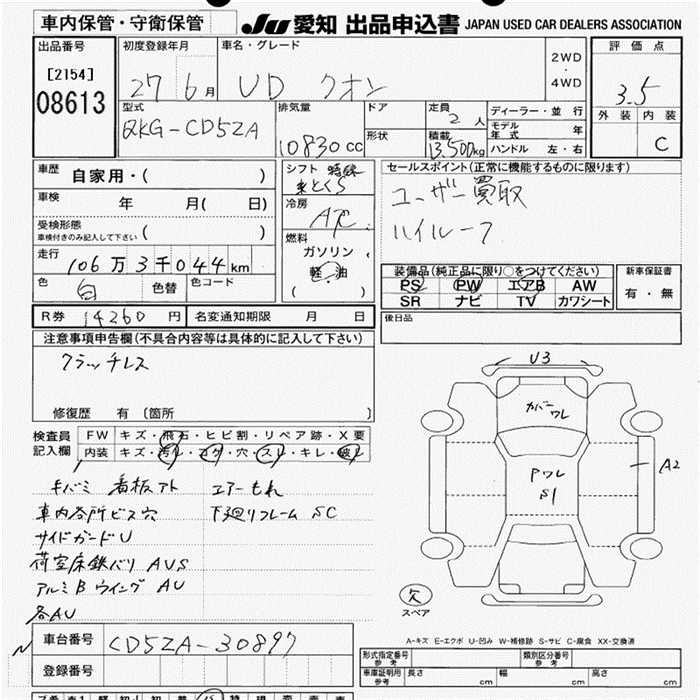 車内保管・守衛保管
JU 愛知 出品申込書 JAPAN USED CAR DEALERS ASSOCIATION
出品番号
[2154]
08613
初度登録年月
27 6月
車名・グレード
UD クオン
2WD
・
4WD
評価点
3.5
外装 内装
C
型式
QKG-CD5ZA
排気量
10830cc
ドア
形状
定員
2人
積載
13,500kg
ディーラー・並行
モデル年式 年
ハンドル 左・右
車歴
自家用・( )
車検
年 月( 日)
受検形態
車検付きのみ記入して下さい ( )
走行
106万3千044km
色
白
色替
色コード
シフト
冷房
AC
燃料
ガソリン
軽油
( )
セールスポイント(正常に機能するものに限ります)
ユーザー買取
ハイルーフ
装備品(純正品に限り○をつけてください)
PS PW エアB AW
SR ナビ TV カワシート
新車保証書
有・無
R券 14260円
名変通知期限 月 日
後日品
注意事項申告欄(不具合内容等は具体的に記入して下さい)
クラッチレス
修復歴 有 〔箇所 〕
検査員
記入欄
FW キズ・飛石・ヒビ割・リペア跡・X要
内装 キズ・汚れ・コゲ・穴・スレ・キレ・破れ
キバミ 看板アト エアーもれ
車内各所ビス穴 下廻りフレーム SC
サイドガード U
荷室床鉄バリ AUS
アルミB ウイング AU
各AU
車台番号 CD5ZA-30897
登録番号
U3
カバーワレ
Pワレ
S1
A2
欠
スペア
A-キズ E-エクボ U-凹み W-補修跡 S-サビ C-腐食 XX-交換済
形式指定番号
参考
類別区分番号
参考
車庫証明用
参考
長さ cm
幅 cm
高さ cm